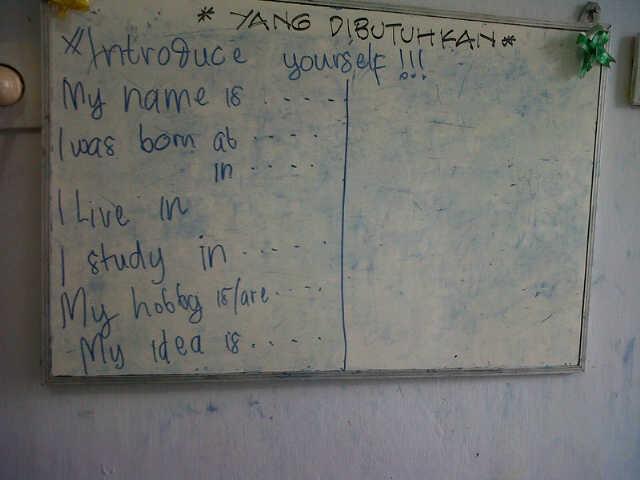 * YANG DIBUTUHKAN *
*Introduce yourself !!!
My name is .....
I was born at ....
in ....
I Live in
I study in .....
My hobby is/are ....
My idea is .....